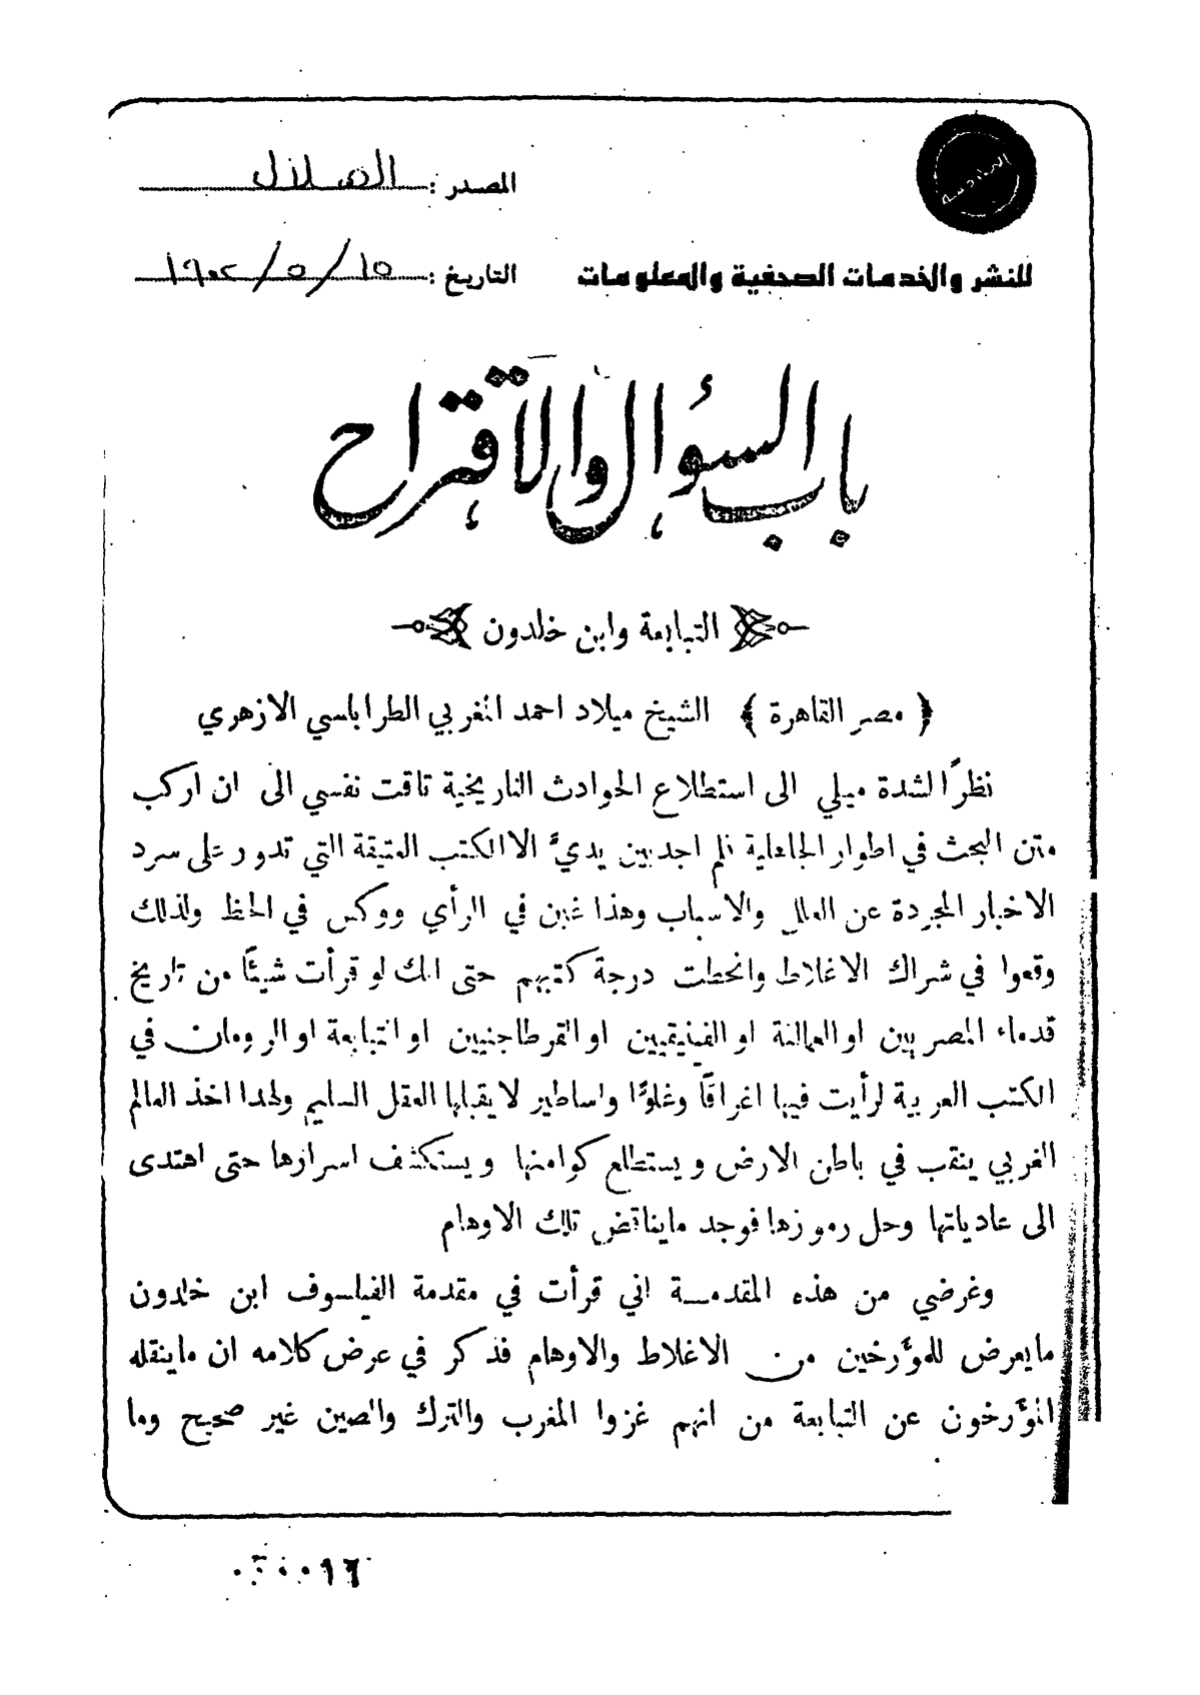 المصدر : الهلال
للنشر والخدمات الصحفية والمعلومات
التاريخ : ١٥ / ٥ / ١٩٠٢
باب السؤال والاقتراح
التبابعة وابن خلدون
﴿ مصر القاهرة ﴾ الشيخ ميلاد احمد المغربي الطرابلسي الازهري
نظرًا لشدة ميلي الى استطلاع الحوادث التاريخية تاقت نفسي الى ان اركب
متن البحث في اطوار الجاهلية فلم اجد بين يديَّ الا الكتب العتيقة التي تدور على سرد
الاخبار المجردة عن العلل والاسباب وهذا غبن في الرأي ووكس في الحظ ولذلك
وقعوا في شراك الاغلاط وانحطت درجة كتبهم حتى انك لو قرأت شيئًا من تاريخ
قدماء المصريين او العمالقة او الفينيقيين او القرطاجنيين او التبابعة او الرومان في
الكتب العربية لرأيت فيها اغراقًا وغلوًّا واساطير لا يقبلها العقل السليم ولهذا اخذ العالم
الغربي ينقب في باطن الارض ويستطلع كوامنها ويستكشف اسرارها حتى اهتدى
الى عادياتها وحل رموزها فوجد ما يناقض تلك الاوهام
وغرضي من هذه المقدمة اني قرأت في مقدمة الفيلسوف ابن خلدون
ما يعرض للمؤرخين من الاغلاط والاوهام فذكر في عرض كلامه ان ما ينقله
المؤرخون عن التبابعة من انهم غزوا المغرب والترك والصين غير صحيح وما